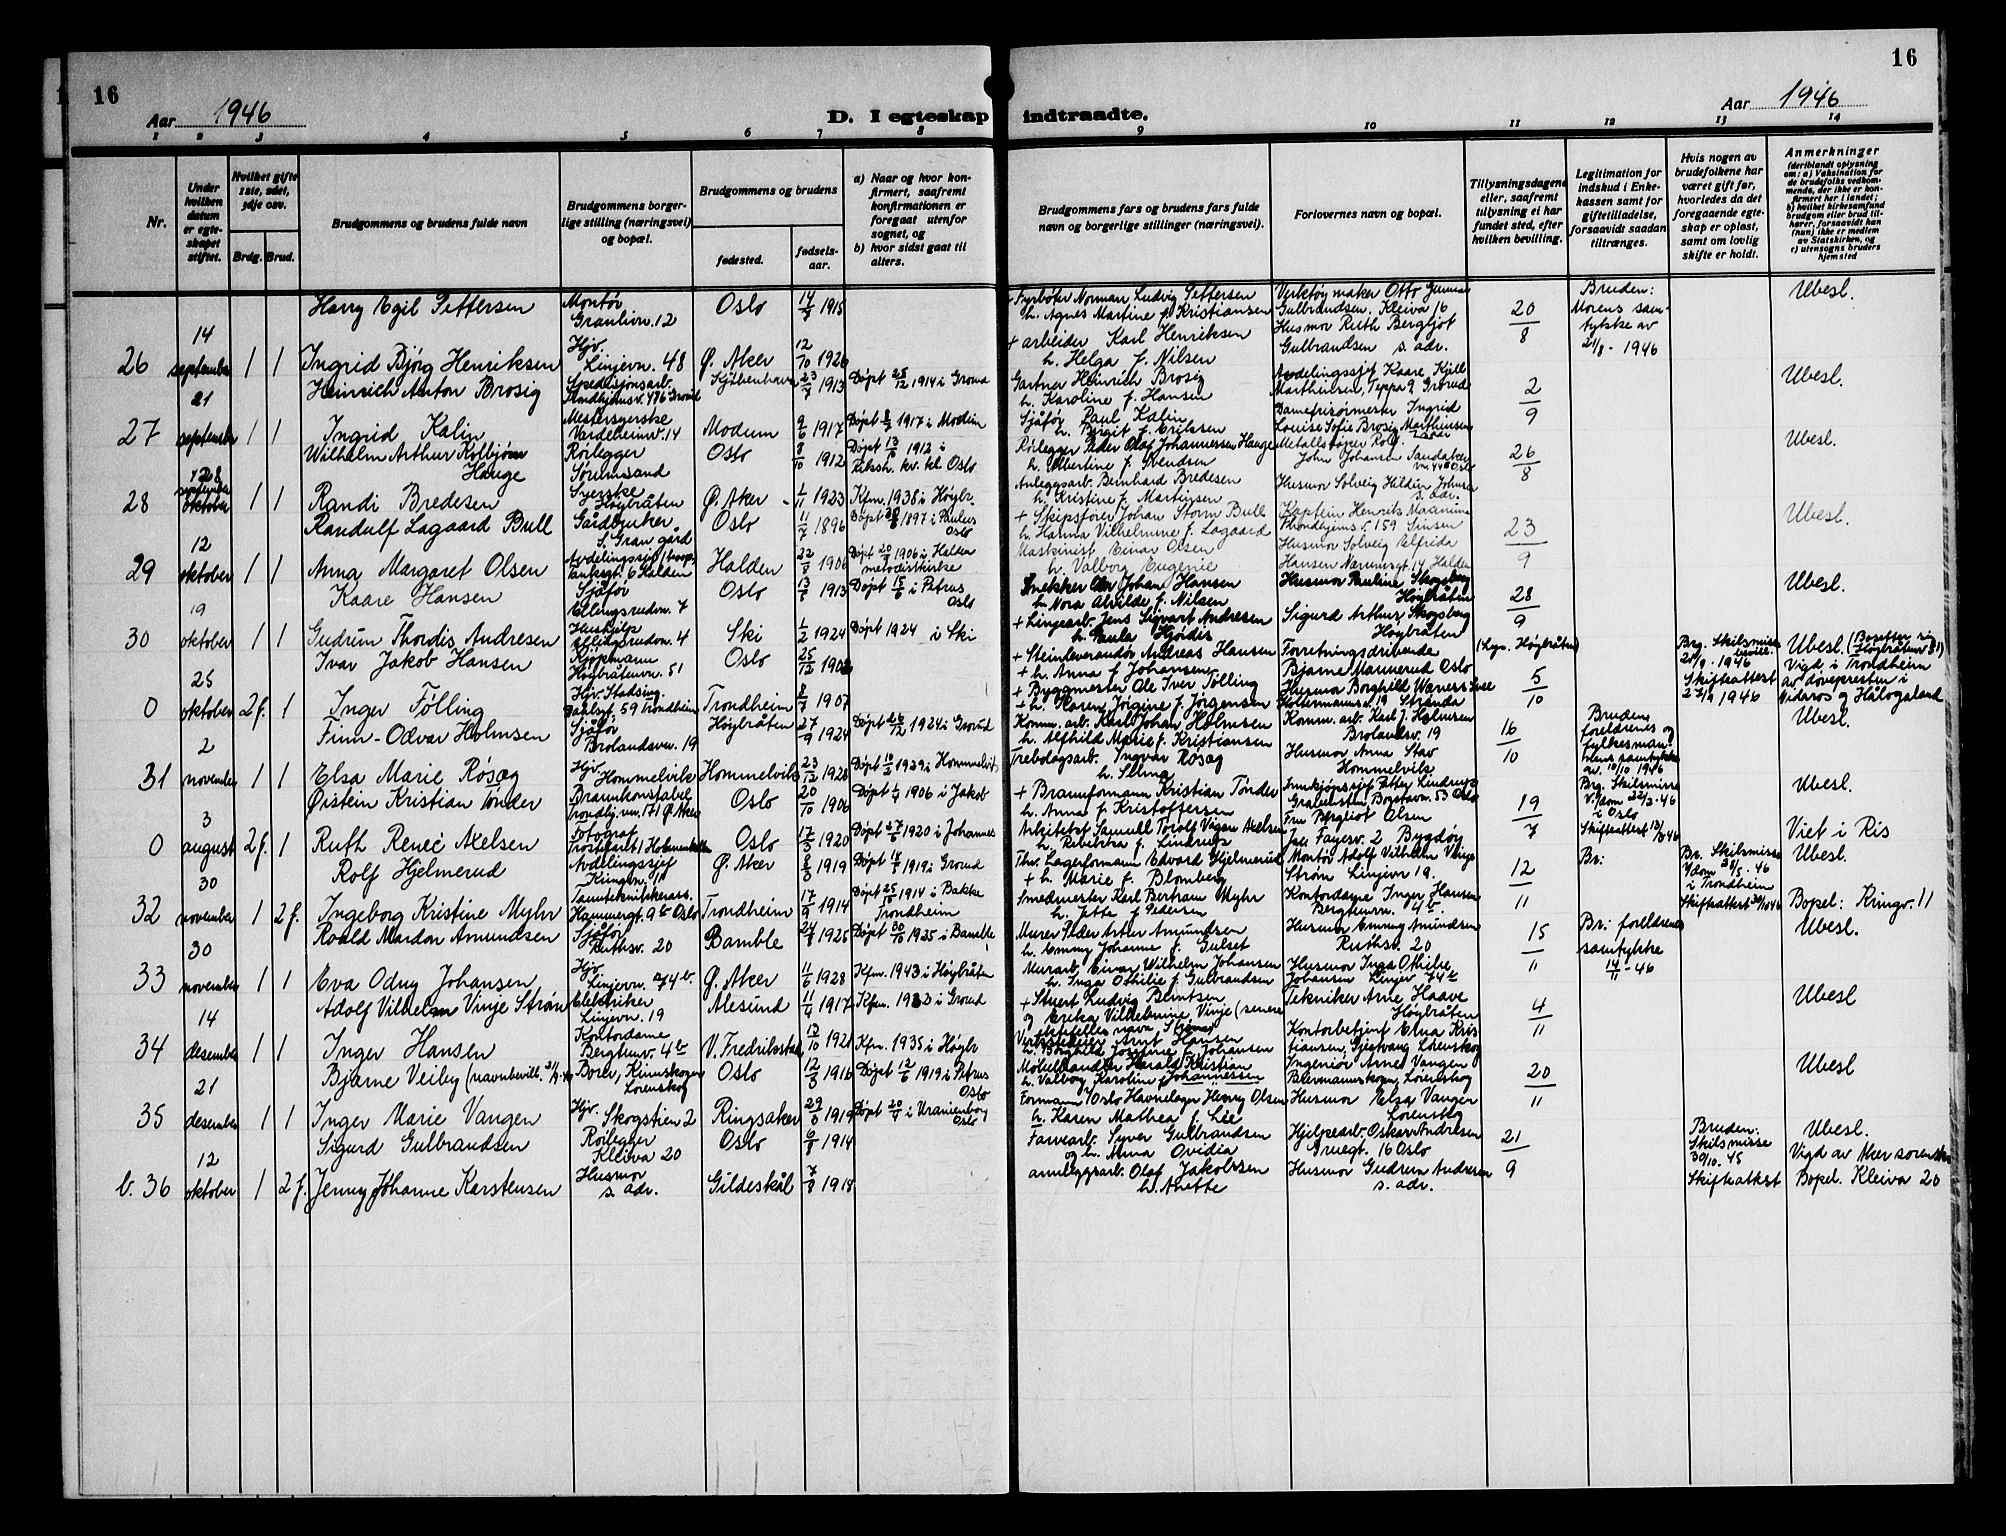 16
16
Aar 1946
D. I egteskap indtraadte.
Aar 1946
1 2 3 4 5 6 7 8 9 10 11 12 13 14
Nr.
Under hvilken datum er egteskapet stiftet.
Hvilket gifte 1ste, 2det, 3dje osv.
Brdg. Brud.
Brudgommens og brudens fulde navn
Brudgommens borgerlige stilling (næringsvei) og bopæl.
Brudgommens og brudens
fødested.
fødselsaar.
a) Naar og hvor konfirmert, saafremt konfirmationen er foregaat utenfor sognet, og
b) hvor sidst gaat til alters.
Brudgommens fars og brudens fars fulde navn og borgerlige stillinger (næringsvei).
Forlovernes navn og bopæl.
Tillysningsdagene eller, saafremt tillysning ei har fundet sted, efter hvilken bevilling.
Legitimation for indskud i Enkekassen samt for giftetilladelse, forsaavidt saadan tiltrænges.
Hvis nogen av brudefolkene har været gift før, hvorledes da det foregaaende egteskap er opløst, samt om lovlig skifte er holdt.
Anmerkninger
(deriblandt oplysning om: a) Vaksination for de brudefolks vedkommende, der ikke er konfirmert her i landet; b) hvilket kirkesamfund brudgom eller brud tilhører, forsaavidt han (hun) ikke er medlem av Statskirken, og c) utensogns bruders hjemsted
Harry Egil Pettersen Montør Granlivn. 12 Oslo 14/7 1915 + Fyrbøter Norman Ludvig Pettersen h. Agnes Martine f. Kristiansen Verktøymaker Otto Gulbrandsen. Kleiva 16 20/8 Bruden: Morens samtykke av 21/8 - 1946 Ubesl.
26 14 september 1 1 Ingrid Bjørg Henriksen Hjv. Linjevn. 48 Ø. Aker 12/10 1926 + arbeider Karl Henriksen h. Helga f. Nilsen Husmor Ruth Bergljot Gulbrandsen s. adr.
Heinrich Anton Brosig Spedisjonsarb. 1913 Døpt 25/12 1914 i Grorud Gartner Heinrich Brosig h. Karoline f. Hansen Avdelingssjef Kaare Kjell Marthinsen, Teppa 9 Grorud 2/9 Ubesl.
27 21 september 1 1 Ingrid Kalin Vardeheimv. 14 Modum 9/6 1917 Døpt 1917 i Modum Sjåfør Paul Kalin h. Birgit f. Eriksen Damefrisørmester Ingrid Louise Sofie Brosig Marthinsen
Wilhelm Arthur Kolbjørn Hauge Rørlegger Sørumsand Oslo 8/10 1912 Døpt 13/10 1912 i Oslo Rørlegger Peder Olaf Johannessen Hauge h. Albertine f. Svendsen John Johansen 26/8 Ubesl.
28 28 september oktober 1 1 Randi Bredesen Syerske Høybråten Ø. Aker 1/11 1923 Kfm. 1938 i Høybr. Anleggsarb. Bernhard Bredesen h. Kristine f. Martinsen Husmor Solveig Johnsen s. adr.
Randulf Lagaard Bull Gårdbruker S. Gran gård Oslo 11/7 1896 1897 i Paulus Oslo + Skipsfører Johan Storm Bull + h. Hanna Vilhelmine f. Lagaard Kaptein Henrik Trondhjemsv. 159 Sinsen 23/9 Ubesl.
29 12 oktober 1 1 Anna Margaret Olsen Tanksgt. 6 Halden Halden 22/8 1906 Døpt 1906 i Halden metodistkirke Maskinist Einar Olsen h. Valborg Eugenie Husmor Solveig Elfrida Hansen 14 Halden
Kaare Hansen Sjåfør Ellingsrudvn. 7 Oslo 1913 Døpt i Petrus Oslo Snekker Johan Hansen h. Nora Alvilde f. Nilsen Husmor Pauline Skogsberg Høybråten 28/9 Ubesl.
30 19 oktober 1 1 Gudrun Thordis Andresen Hushjelp Ellingsrudvn. 4 Ski 1/2 1924 Døpt 1924 i Ski + Linjearb. Jens Sigvart Andresen h. Paula Hjørdis Sigurd Arthur Skogsberg Høybråten
Ivar Jakob Hansen Kjøpmann Høybråtenvn. 51 Oslo 25/12 1902 + Steinleverandør Andreas Hansen + h. Anna f. Johansen Forretningsdrivende Bjarne Mannerud Oslo (Lys. Høybråten) 5/10 Brg. Skilsmisse bevill. 1946 Skifteattest 1946 Ubesl. (Bosetter sig Høybråtenvn 51) Vigd i Trondheim av døvepresten i Nidaros og Hålogaland
0 25 oktober 2 f. 1 Inger Følling Hjv. Stadsing. Dahlsgt. 59 Trondheim Trondheim 8/7 1907 + Byggmester Ole Iver Følling + h. Karen Jørgine f. Jørgensen Husmor Borghild
Finn-Odvar Holmsen Sjåfør Brolandsvn. 19 Høybråten 27/9 1924 Døpt 26/12 1924 i Grorud Komm. arb. Karl Johan Holmsen h. Alfhild Marie f. Kristiansen Komm. arb. Karl J. Holmsen Brolandsv. 19 16/10 Brudens foreldrenes og fylkesmannens samtykke av 10/10 1946 Ubesl.
31 2 november 1 1 Elsa Marie Røsæg Hjv. Hommelvik Hommelvik 23/12 1928 Døpt 10/2 1929 i Hommelvik Trebdsarb. Ingvar Røsæg h. Selma Husmor Anna Stav Hommelvik
Øistein Kristian Tønder Brannkonstabel Trondhj.vn. 171 Ø. Aker Oslo 20/10 1906 Døpt 1906 i Jakob + Brannformann Kristian Tønder h. Anna f. Kristoffersen Innkjøpssjef Petter 53 Oslo 19/7 Brg. Skilsmisse v. dom 22/2-46 i Oslo Skifteattest Ubesl.
0 3 august 2 f. 1 Ruth Reneé Axelsen Fotograf Oslo 17/3 1920 Døpt 1920 i Johannes Arkitekt Samuell Torolf Axelsen h. Rebekka f. Lindrup Fru Bergliot Olsen Jac. Fayesv. 2 Bygdøy Viet i Ris
Rolf Hjelmerud Avdelingssjef Ringvn. 11 Ø. Aker 8/3 1919 Døpt 1919 i Grorud Lagerformann Edvard Hjelmerud + h. Marie f. Blomberg Montør Adolf Vilhelm Vinje Strøm Linjevn 19. 12/11 Br: Br. Skilsmisse v/dom 31/5 - 46 i Trondheim Skifteattest Ubesl.
32 30 november 1 2 f. Ingeborg Kristine Myhr Tannteknikerass. Hammersgt. 9b Oslo Trondheim 17/9 1914 Døpt 25/10 1914 i Bakke Trondheim Smedmester Karl Bertram Myhr h. Jette f. Pedersen Kontordame Inger Hansen Bergtunvn. 4b. Bopel: Ringv. 11
Roald Mardon Amundsen Sjåfør Ruthsv. 20 Bamble 24/8 1925 Døpt 1925 i Bamble Murer Peder Arter Amundsen h. Emmy Johanne f. Gulset Husmor Emmy Amundsen Ruthsv. 20 15/11 Br: foreldrenes samtykke 14/11 - 46 Ubesl.
33 30 november 1 1 Eva Odny Johansen Hjv. Linjevn. 74b. Ø. Aker 11/6 1928 Kfm. 1943 i Høybråten Murarb. Einar Wilhelm Johansen h. Inga Othilie f. Gulbrandsen Husmor Inga Othilie Johansen Linjev 74b
Adolf Vilhelm Vinje Strøm Elektriker Linjevn. 19 Alesund 11/4 1917 Kfm. 1932 i Grorud + Stuert Ludvig Berntsen og Erika Vilhelmine Vinje (senere ektefelles navn, Strøm) Tekniker Arne Haave Høybråten 4/11 Ubesl
34 14 desember 1 1 Inger Hansen Kontordame Bergtunv. 4b V. Fredrikstad 13/10 1921 Kfm. 1935 i Høybr. Arnt Hansen h. Borghild Josefine f. Johansen Kontorbetjent Elna Kristiansen, Gjestvang Lørenskog
Bjarne Veiby (navnbevill. Borev, Rimskogen Lørenskog Oslo 12/3 1916 Døpt 12/6 1919 i Petrus Oslo Møbelhandler Harald Kristian h. Valborg Karoline f. Johannessen Ingeniør Arne Vangen Lørenskog 20/11 Ubesl
35 21 desember 1 1 Inger Marie Vangen Hjv. Skogstien 2 Ringsaker 29/3 1919 Døpt 20/4 i Uranienborg Oslo Formann v/Oslo Havnelager Henry Olsen h. Karen Mathea f. Lie Husmor Elsa Vangen Lørenskog
Sigurd Gulbrandsen Rørlegger Kleiva 20 Oslo 6/8 1914 Farvearb. Syver Gulbrandsen og h. Anna Ovidia Hjelpearb. Oskar Andresen Gruegt. 16 Oslo 21/9 Bruden: Skilsmisse 30/10. 45 Skifteattest Ubesl. Vigd av Aker sorenskr.
b. 36 12 oktober 1 2 f. Jenny Johanne Karstensen Husmor s. adr. Gildeskål 7/8 1918 anleggsarb. Olaf Jakobsen h. Anette Husmor Gudrun Andresen s. adr. Bopel. Kleiva 20